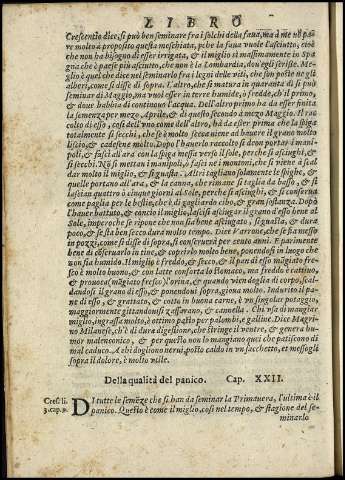 LIBRO
Crescentio dice, si può ben seminare fra i solchi della faua, ma à me nõ pa=
re molto à proposito questa meschiata, pche la faua vuole l'asciutto, cioè
che non ha bisogno di esser irrigata, & il miglio sì massimamente in Spa
gna che è paese più asciuto, che non è la Lombardia, dou'egli scrisse. Me-
glio è quel che dice nel seminarlo fra i legni delle viti, che sun poste ne gli
alberi, come si disse di sopra. L'altro, che si matura in quaranta dì si può
seminar di Maggio, ma vuol esser in terre humide, ò fredde, ch'il primo,
& doue habbia di continouo l'acqua. Dell'altro primo ha da esser finita
la semenza per mezo Aprile, & di questo secondo à mezo Maggio. Il rac
colto di esso, così dell'vno come dell'altro, ha da esser prima che la spiga
totalmente si secchi, che se è molto secca viene ad hauere il grano molto
liscio, & cadesene molto. Dopò l'hauerlo raccolto si deon portar i manip-
oli, & farsi all'ara con la spiga messa verso il sole, perche si asciughi, &
si secchi. Nõ si metta in manipoli, ò fasci ne i montoni, che si viene à scal
dar molto il miglio, & si guasta. Altri tagliano solamente le spighe, &
quelle portano all'ara, & la canna, che rimane si taglia da basso, & si
lascia quattro ò cinque giorni al Sole, perche si asciughi, & si conserua
come paglia per le bestie, che è di gagliardo cibo, & gran sostanza. Dopò
l'hauer battuto, & concio il miglio, lascisi asciugar il grano d'esso bene al
Sole, imperoche se ripone che non sia ben secco, si guasta, & si ammuffa, & dura
poco, & se sta ben secco dura molto tempo. Dice Varrone, che se sia messo
in pozzi, come si disse di sopra, si conseruerà per cento anni. E parimente
bene di osseruarlo in tine, & coprirlo molto bene, ponendosi in luogo che
non sia humido. Il miglio è freddo, & secco, & il pan di esso mãgiato fre-
sco è molto buono, & con latte conforta lo stomaco, ma freddo è cattiuo,
& prouoca (mãgiato fresco) l'orina, & quando vien doglia di corpo, scal-
dandosi il grano di esso, & ponendosi sopra, gioua molto. Indurito il pa-
ne di esso, & grattato, & cotto in buona carne, è vn singolar potaggio,
maggiormente gittandouisi zaffarano, & cannella. Chi vsa di mangiar
miglio, ingrassa molto, è ottimo pasto per palombi, e galline. Dice Magni-
no Milanese, ch'è di dura digestione, che stringe il ventre, & genera hu
mor malenconico, & per questo non lo mangiano quei che patiscono di
mal caduco. A chi dogliono nerui, posto caldo in vn sacchetto, et messogli
sopra il dolore, è molto vtile.
Della qualità del panico. Cap. XXII.
Cres. li.
3. cap. 9.
DI tutte le semẽze che si han da seminar la Primauera, l'ultima è il
panico. Questo è come il miglio, così nel tempo, & stagione del se-
minarlo